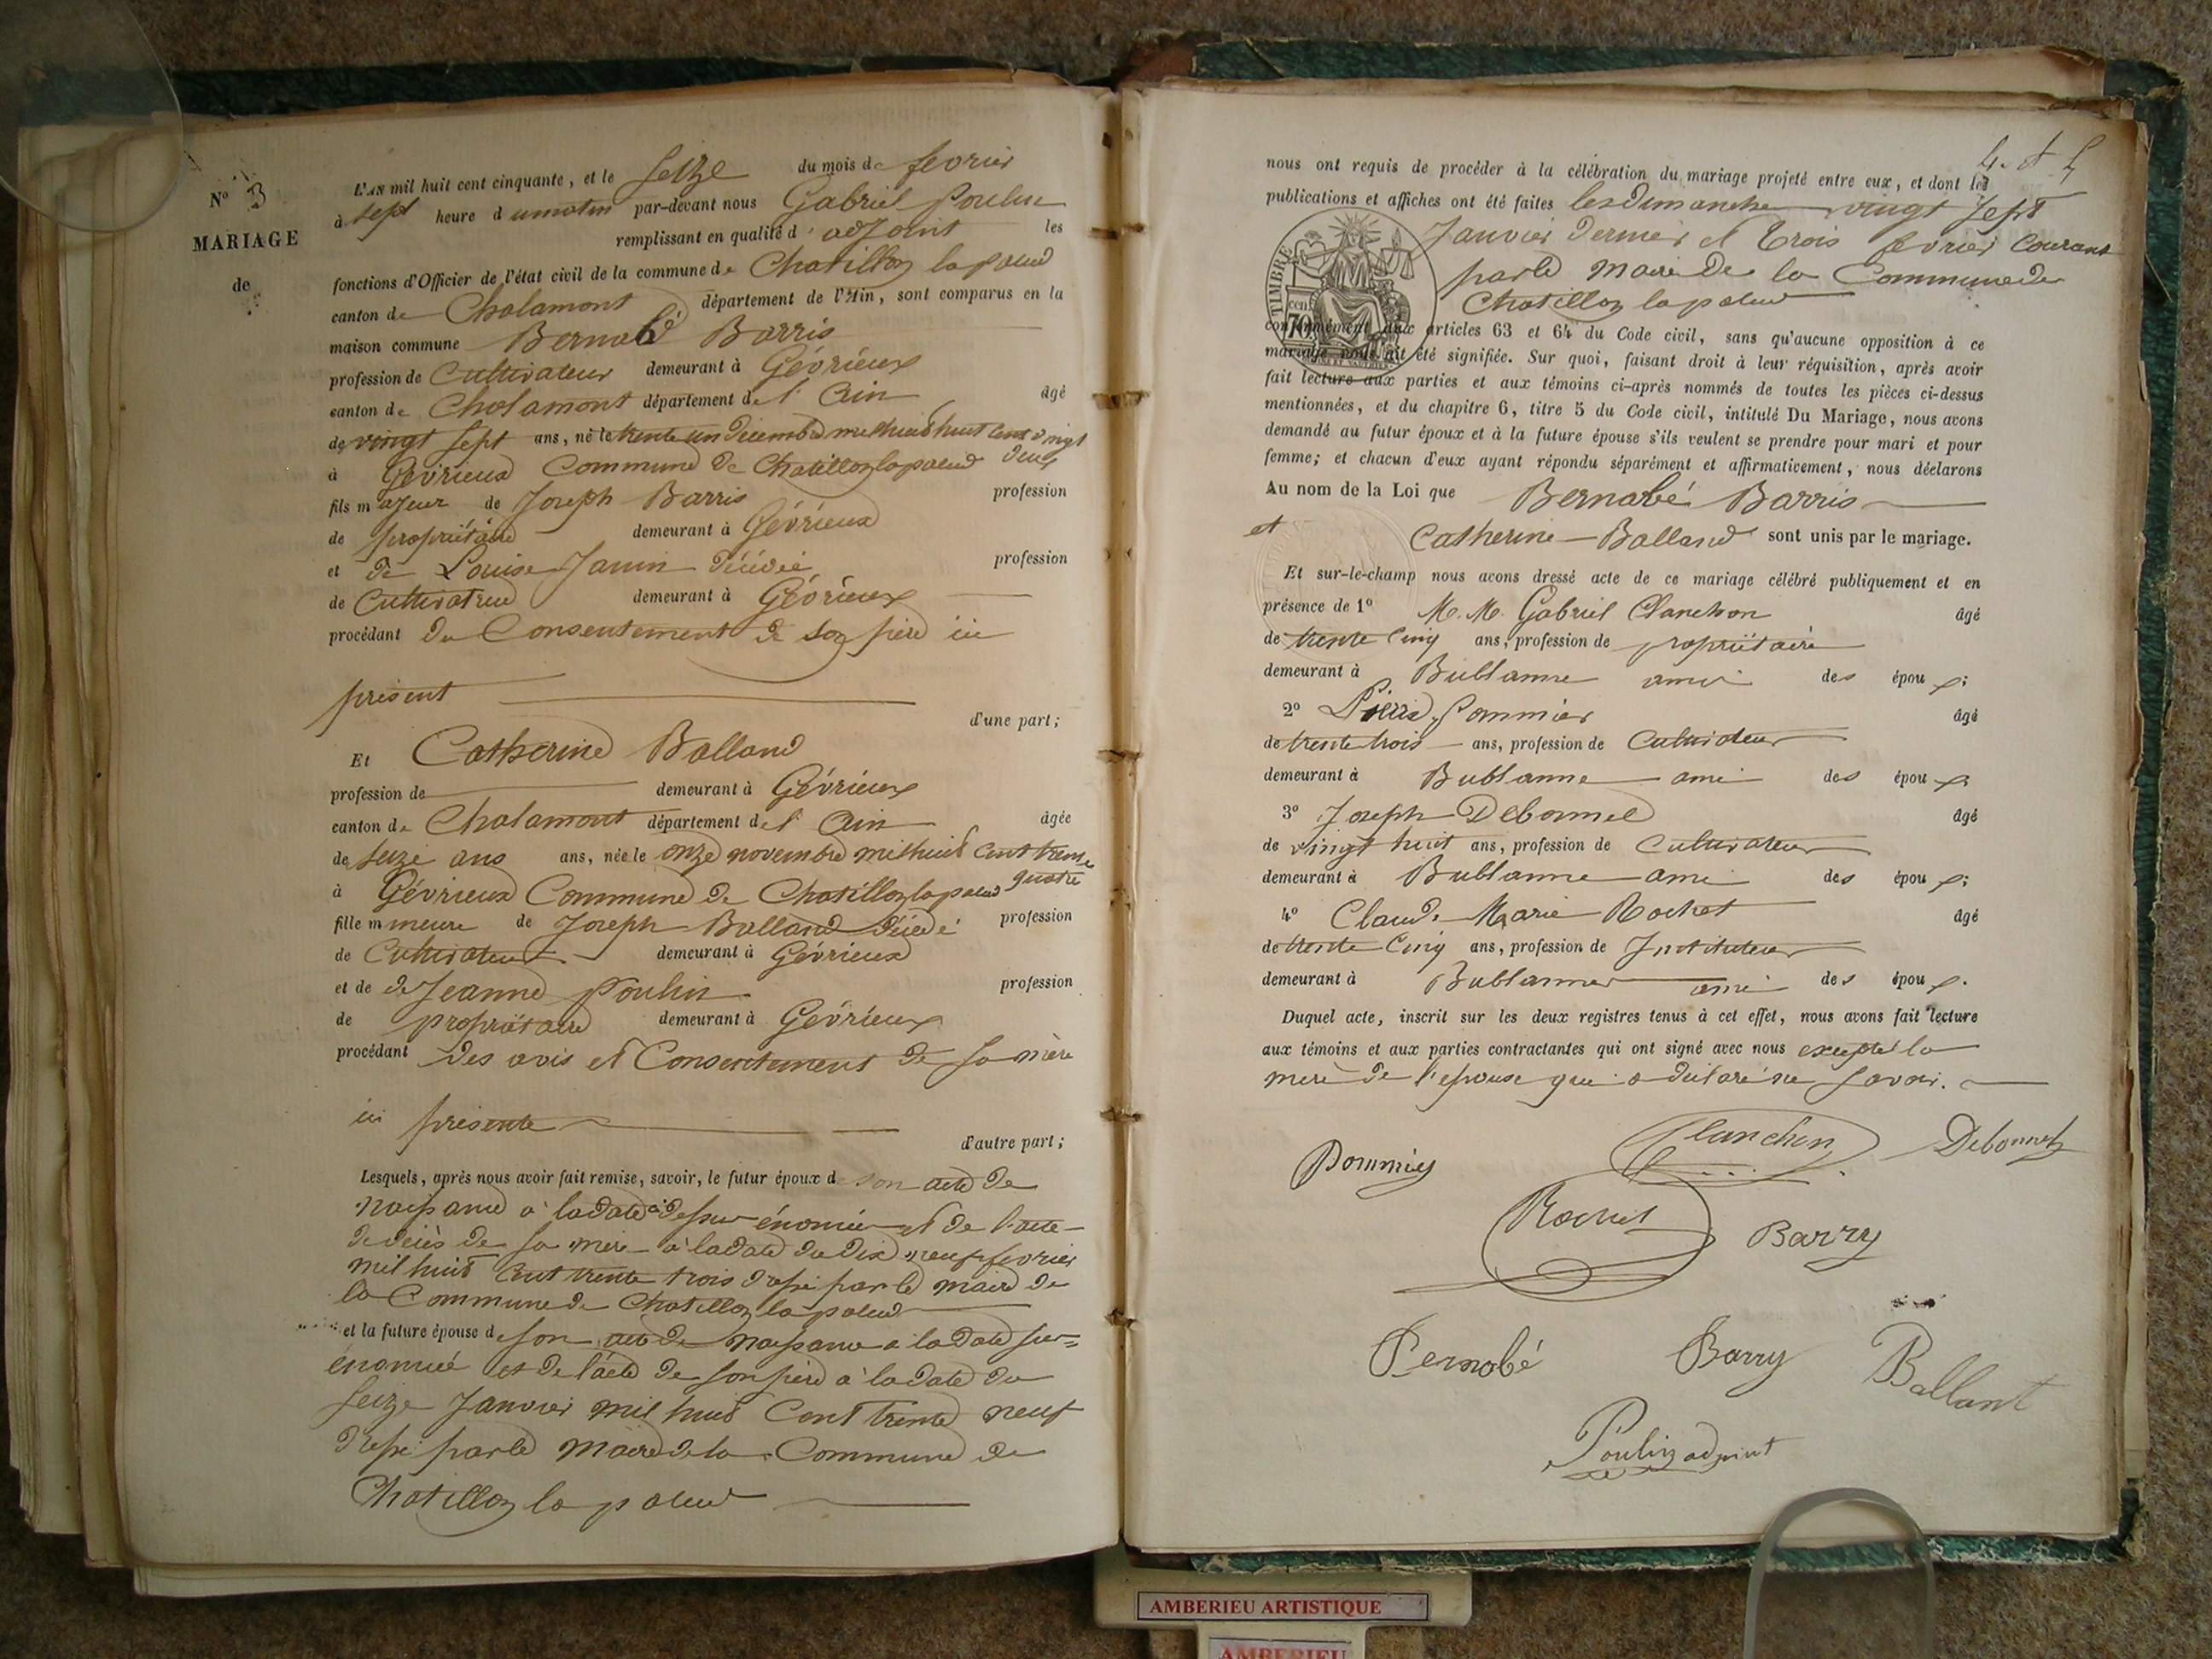 N° 3
MARIAGE
de
L'AN mil huit cent cinquante, et le seize du mois de fevrier
à sept heure d umatin par-devant nous Gabriel Poulin
remplissant en qualité d'adjoint les
fonctions d'Officier de l'état civil de la commune de Chatillon lapalud
canton de Chalamont département de l'Ain, sont comparus en la
maison commune Bernabé Barris
profession de Cultivateur demeurant à Gévrieux
canton de Chalamont département de l'Ain âgé
de vingt sept ans, né le trente un decembre mil huit cent vingt
deux
à Gévrieux Commune de Chatillon lapalud
fils majeur de Joseph Barris profession
de propriétaire demeurant à Gévrieux
et de Louise Janin décédée profession
de Cultivatrice demeurant à Gévrieux
procédant du Consentement de son père ici
présent
d'une part;
Et Catherine Balland
profession de demeurant à Gévrieux
canton de Chalamont département de l'Ain âgée
de seize ans ans, née le onze novembre mil huit cent trente
quatre
à Gévrieux Commune de Chatillon lapalud
fille mineure de Joseph Balland décédé profession
de Cultivateur demeurant à Gévrieux
et de de Jeanne Poulin profession
de propriétaire demeurant à Gévrieux
procédant des avis et Consentement de sa mère
ici présente
d'autre part;
Lesquels, après nous avoir fait remise, savoir, le futur époux de son acte de
naissance à la date dessus énoncée et de l'acte
de décès de sa mère à la date du dix neuf fevrier
mil huit cent trente trois par le maire de
la Commune de Chatillon la palud
et la future épouse de son acte de naissance a la date sus=
énoncée et de l'acte de son père à la date du
seize Janvier mil huit Cent trente neuf
par le Maire de la Commune de
Chatillon la palud
4. et 5
nous ont requis de procéder à la célébration du mariage projeté entre eux, et dont les
publications et affiches ont été faites les Dimanche vingt sept
Janvier dernier et trois fevrier courant
par le Maire de la Commune de
Chatillon lapalud
TIMBRE
70 cen
conformément aux articles 63 et 64 du Code civil, sans qu'aucune opposition à ce
mariage nous ait été signifiée. Sur quoi, faisant droit à leur réquisition, après avoir
fait lecture aux parties et aux témoins ci-après nommés de toutes les pièces ci-dessus
mentionnées, et du chapitre 6, titre 5 du Code civil, intitulé Du Mariage, nous avons
demandé au futur époux et à la future épouse s'ils veulent se prendre pour mari et pour
femme; et chacun d'eux ayant répondu séparément et affirmativement, nous déclarons
Au nom de la Loi que Bernabé Barris
et Catherine Balland sont unis par le mariage.
Et sur-le-champ nous avons dressé acte de ce mariage célébré publiquement et en
présence de 1° M. M. Gabriel Clanchon âgé
de trente cinq ans, profession de propriétaire
demeurant à Bublanne ami des époux;
2° Pierre Pommier âgé
de trente trois ans, profession de Cultivateur
demeurant à Bublanne ami des époux
3° Joseph Debonnel âgé
de vingt huit ans, profession de Cultivateur
demeurant à Bublanne ami des époux;
4° Claude Marie Rochet âgé
de trente Cinq ans, profession de Instituteur
demeurant à Bublanne ami des époux.
Duquel acte, inscrit sur les deux registres tenus à cet effet, nous avons fait lecture
aux témoins et aux parties contractantes qui ont signé avec nous excepté la
mere de l'epouse qui a déclaré ne savoir.
Pommier Clanchon Debonnel
Rochet Barry
Bernabé Barry Ballant
Poulin adjoint
AMBERIEU ARTISTIQUE
AMBERIEU